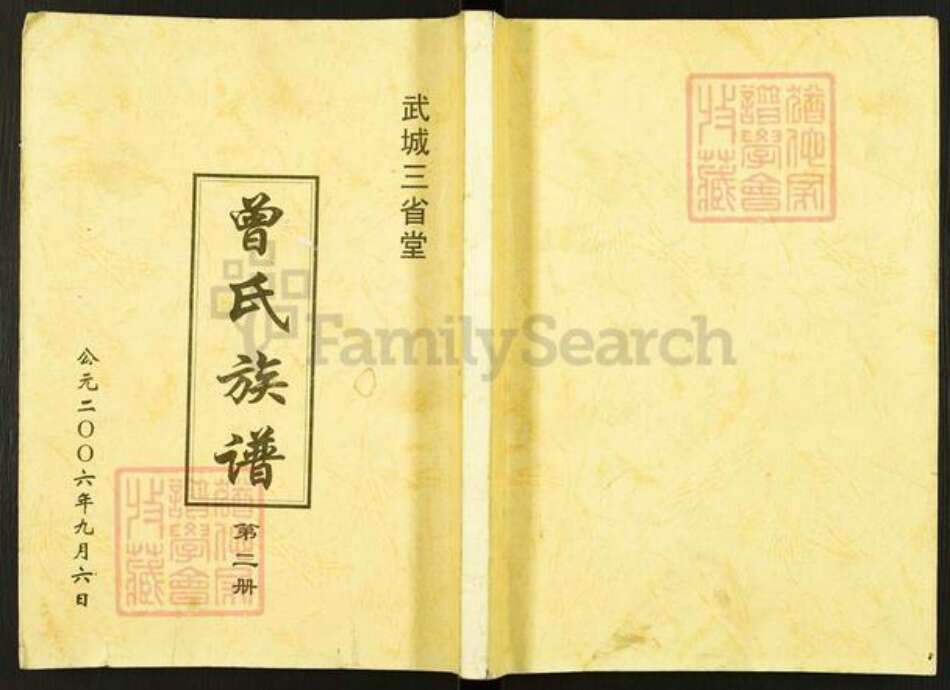 武城三省堂
曾氏族谱
第二册
公元二〇〇六年九月六日
譜學會
收藏
FamilySearch
譜學會
收藏